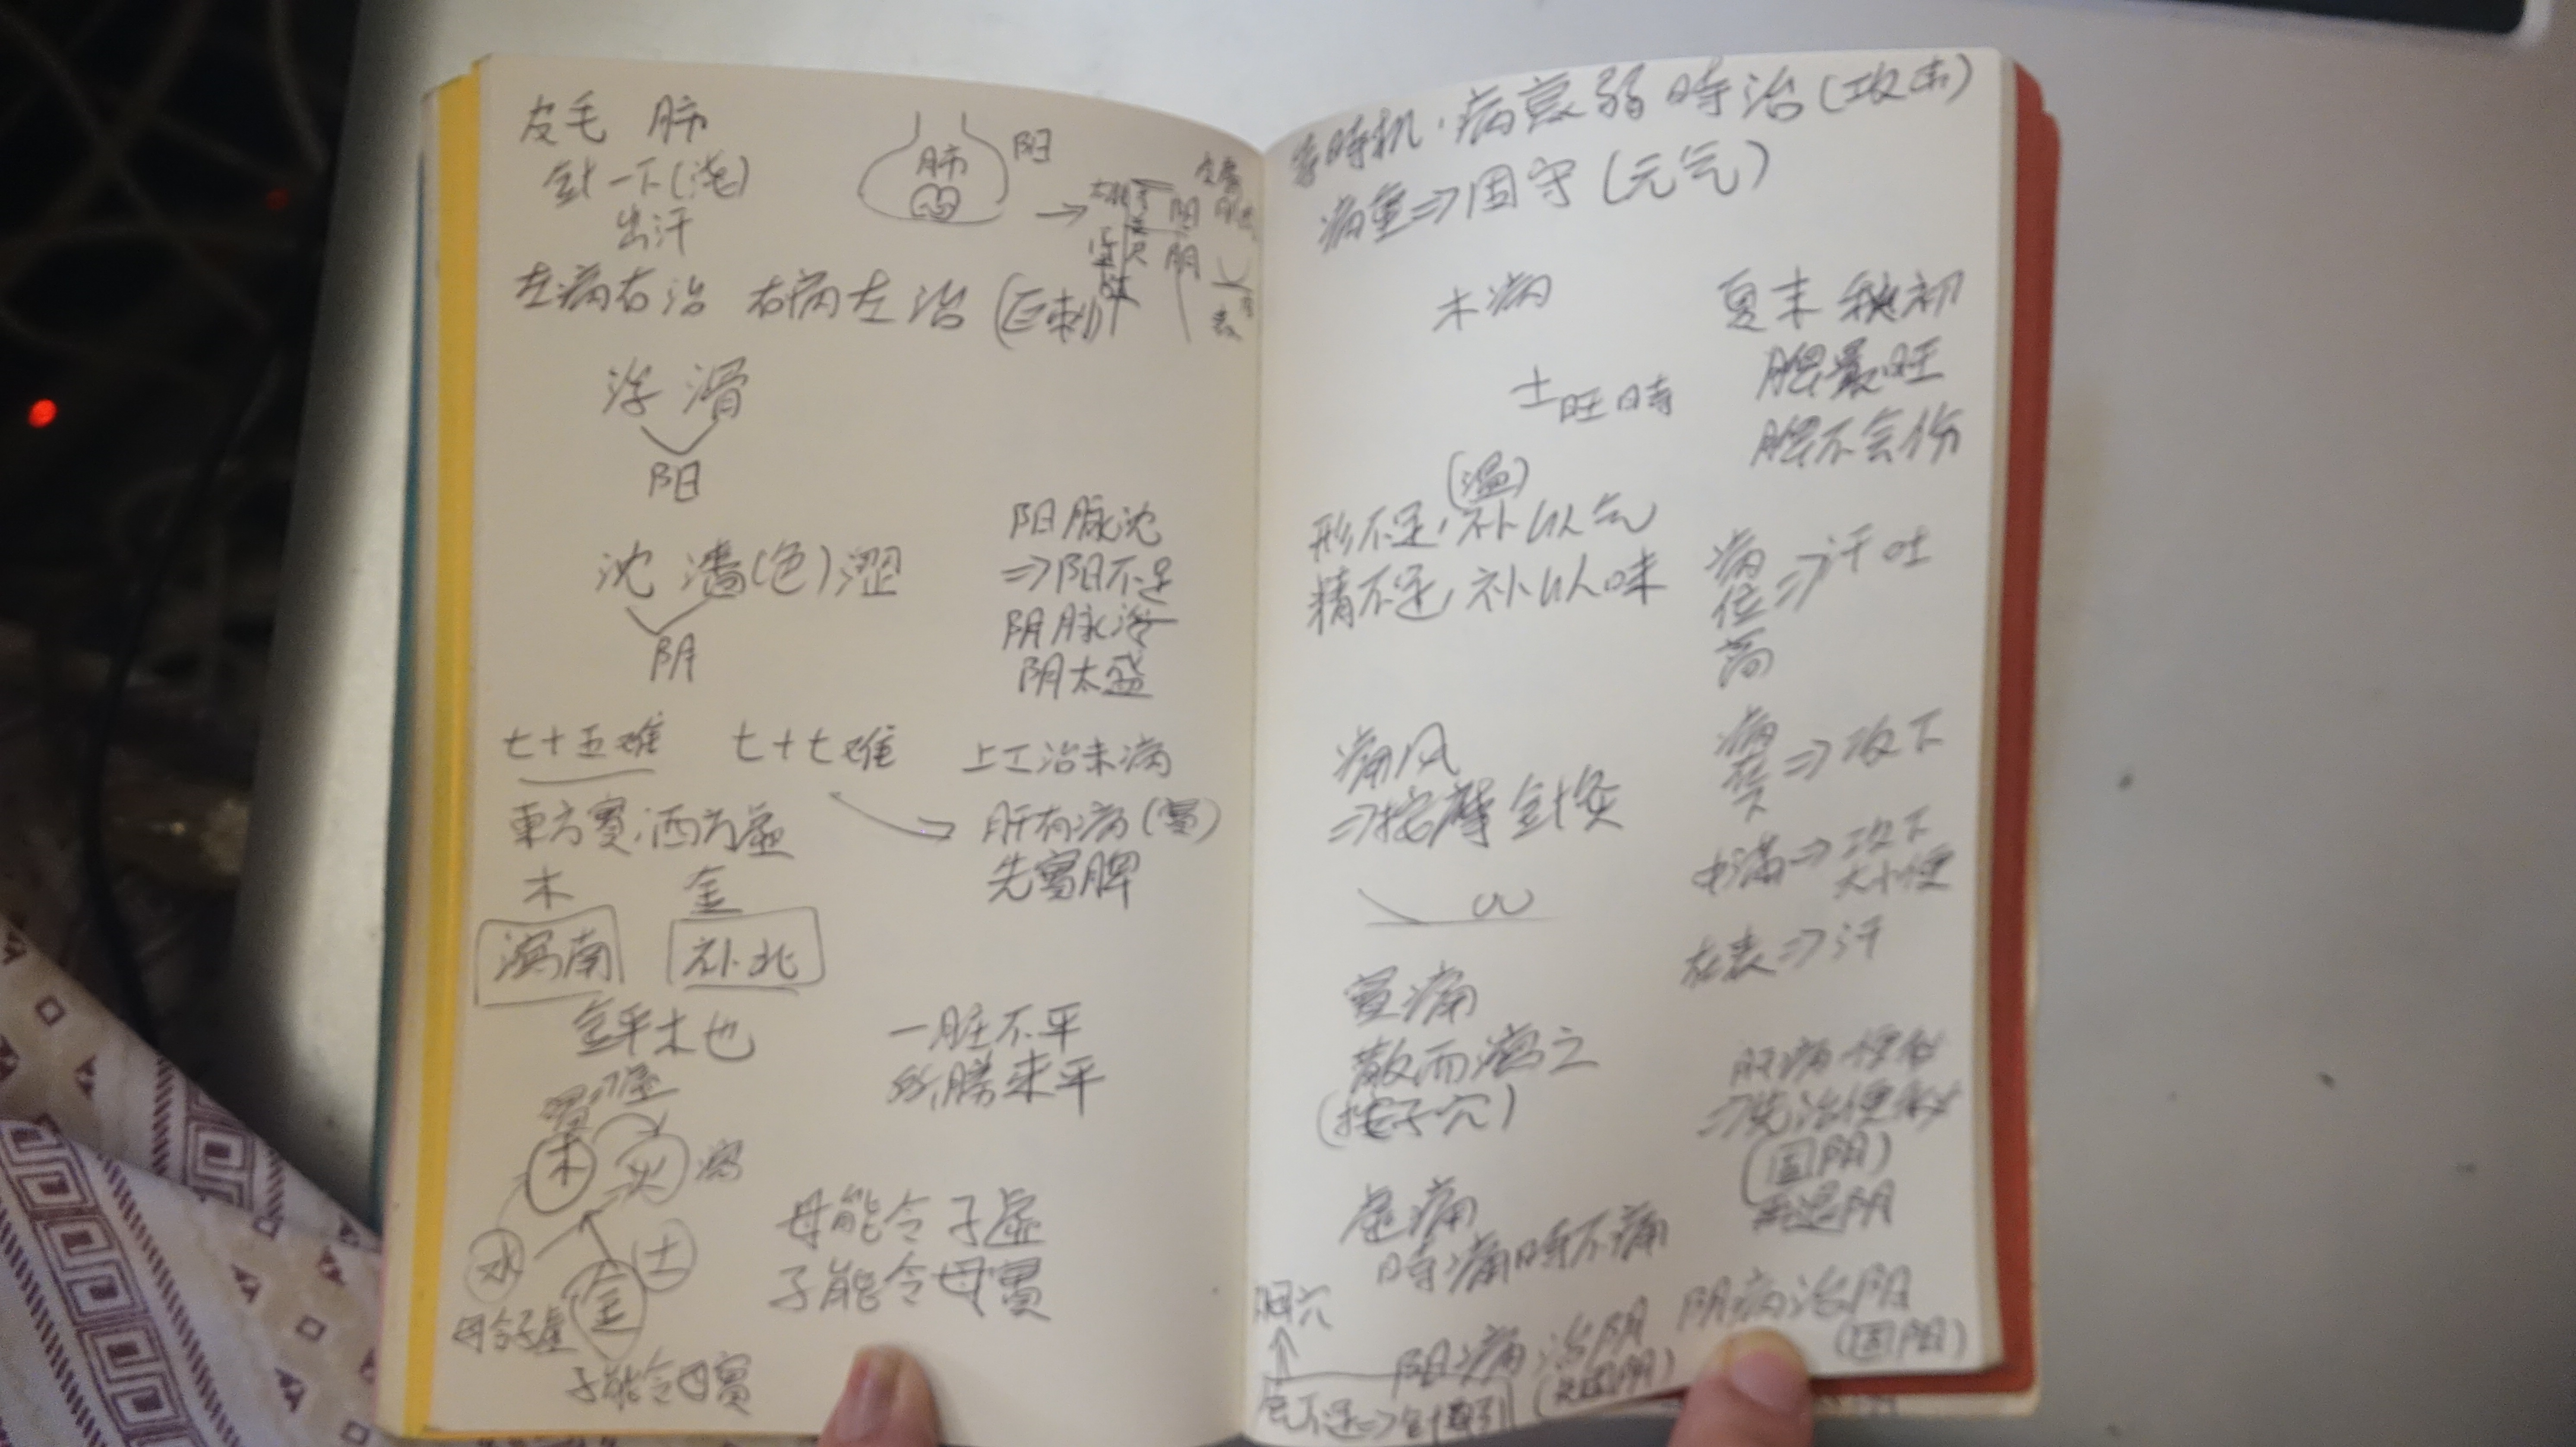 皮毛 肺
針一下(浅)
出汗
肺
阳
阳
阴
表
左病右治 右病左治
浮 滑
阳
沈 濇(色)澀
阴
阳脉沈
⇒阳不足
阴脉浮
阴太盛
七十五难 七十七难
上工治未病
肝有病(實)
先實脾
東方實,西方虛
木 金
瀉南 补北
金平木也
一脏不平
所勝来平
木 火 瀉
水 金 土
母能令子虛
子能令母實
母令子虛
子能令母實
時机,病衰弱時治(攻击)
病重⇒固守(元气)
木病
土旺時
夏末 秋初
脾最旺
脾不会伤
(溫)
形不足,补以气
精不足,补以味
病位高⇒汗吐
痛风
⇒按摩針灸
⇒攻下
中滿⇒攻下
大小便
在表⇒汗
實痛
散而瀉之
(按子穴)
虛痛
時痛時不痛
肝病便秘
⇒先治便秘
(固阴)
阳病治阴 阴病治阳
(固阳)
气不足⇒